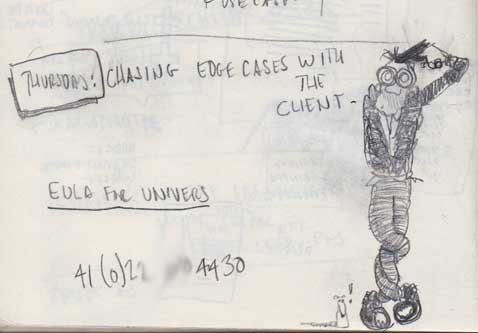 THURSDAY: CHASING EDGE CASES WITH
THE
CLIENT -
EULA FOR UNIVERS
41 (0)22 4430
!